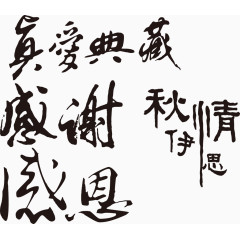 真愛典藏
感謝
感恩
秋伊情思